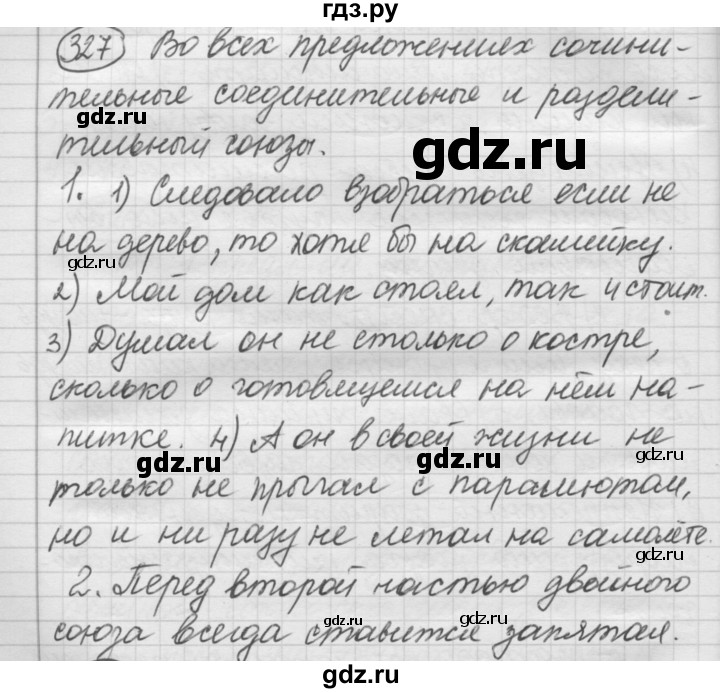 гдз.ру
327 Во всех предложениях сочини-
тельные соединительные и раздели-
gdz.ru
тильный союзы.
gdz.ru
1. 1) Следовало взобраться если не
на дерево, то хотя бы на скамейку.
gdz.ru
gdz.ru
2) Мой дом как стоял, так и стоит.
3) Думал он не столько о костре,
gdz.ru
сколько о готовящемся на нём на-
питке. 4) А он в своей жизни не
gdz.ru
gdz.ru
gdz.ru
только не прыгал с парашютом,
но и ни разу не летал на самолёте.
gdz.ru
gdz.ru
2. Перед второй частью двойного
gdz.ru
союза всегда ставится запятая.
gdz.ru